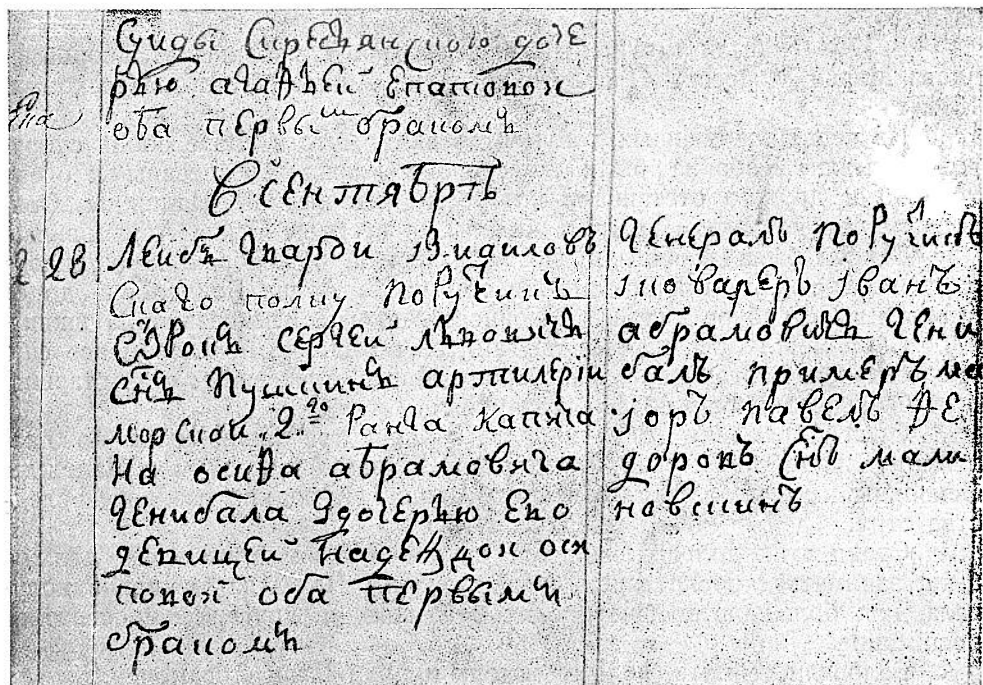 Суиды Сиръчан скою доче
рью агафьей Епатовой
оба первы м браком
В сентябре
2 28 Лейбъ Гвардии Измаиловъ
скаго полку Поручикъ
Сергей Львовичъ
снъ Пушкинъ артилерiи
морской 2го Ранга Капита
на осифа абрамовича
Генибала з дочерью Ево
девицей надеждой оси
повой оба первымъ
бракомъ
Генералъ Поручикъ
и ковареръ Iванъ
абрамовичъ Гени
балъ примеръ ма
iоръ Павелъ Фе
доровъ снъ мали
новскинъ